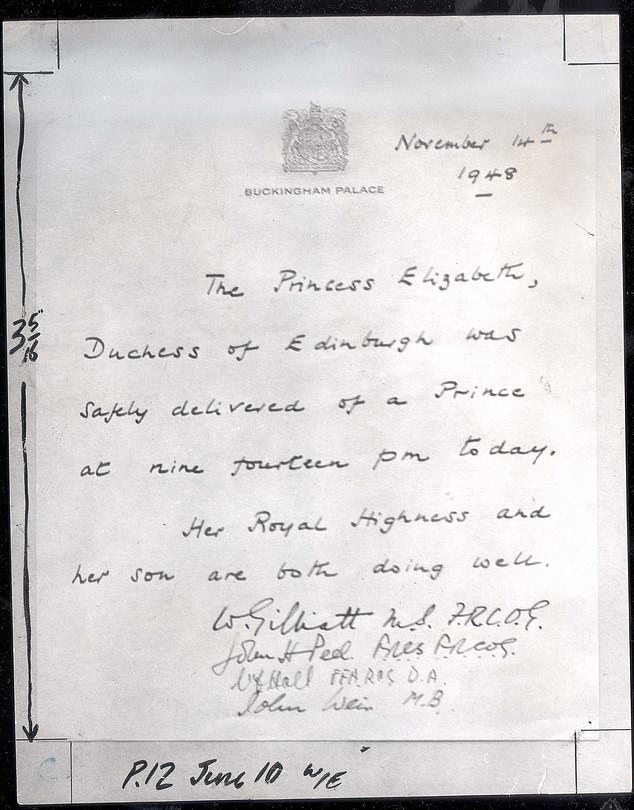 November 14th
1948
BUCKINGHAM PALACE
The Princess Elizabeth,
Duchess of Edinburgh was
safely delivered of a Prince
at nine fourteen pm today.
Her Royal Highness and
her son are both doing well.
W. Gilliatt M.S. F.R.C.O.G.
John H Peel FRCS FRCOG.
Hall D.A.
John Weir M.B.
3 5/16"
C
P.12 June 10 W/E